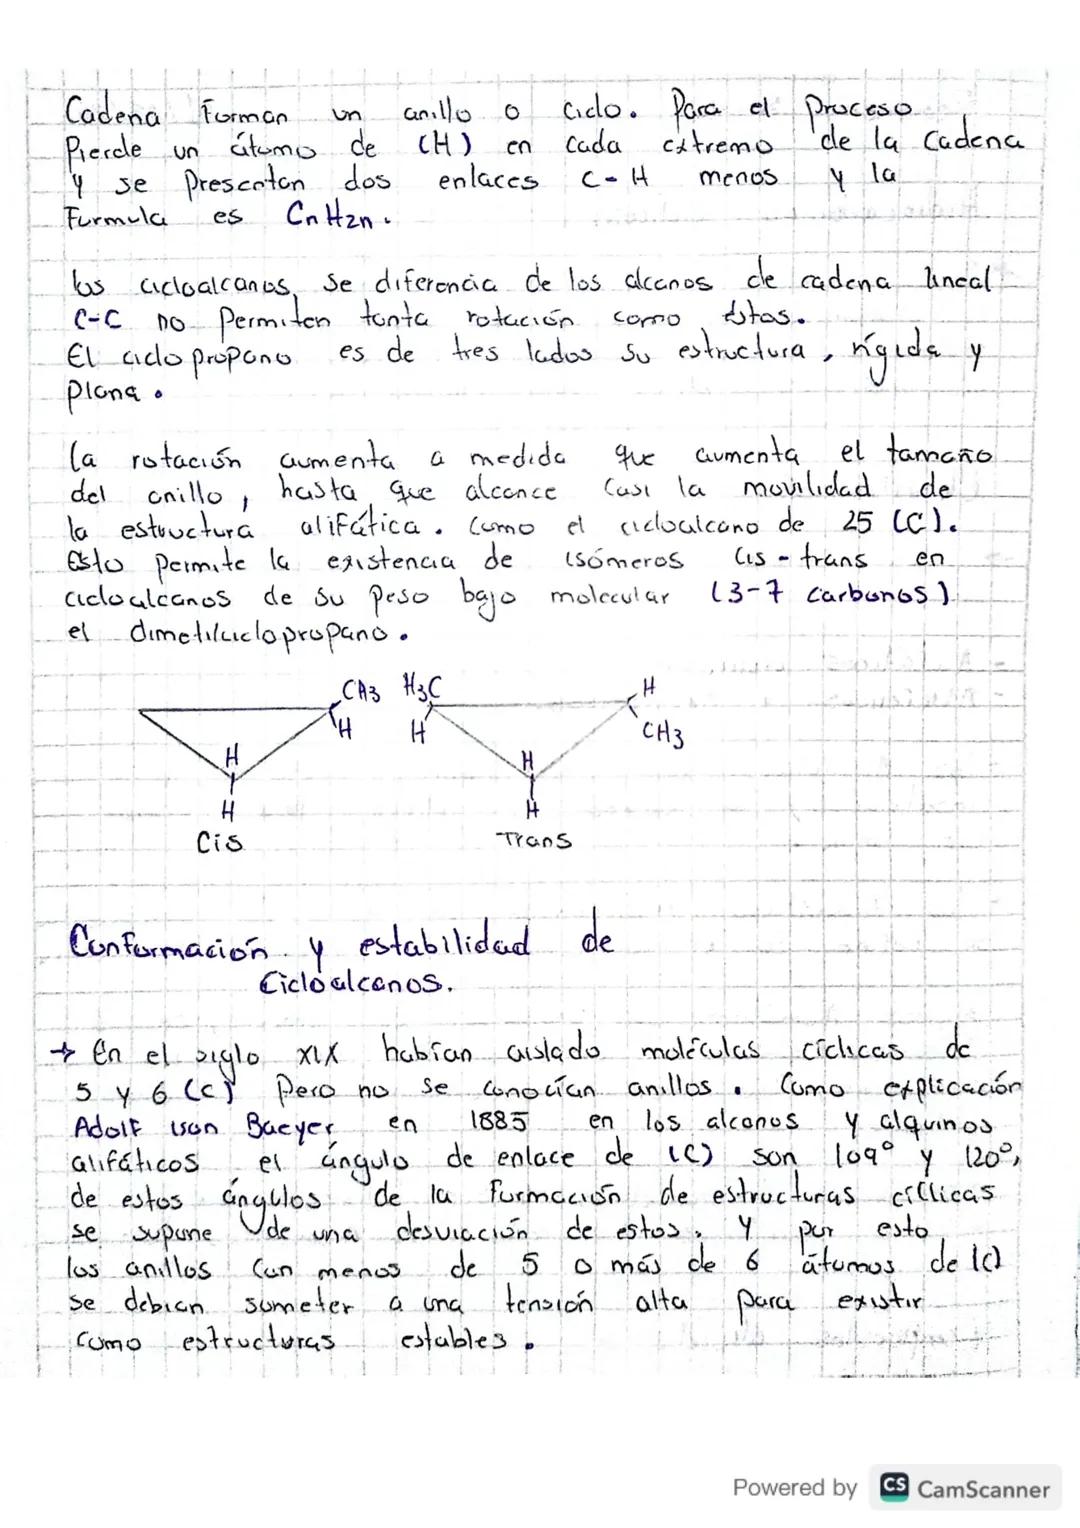 Cadena Forman un anillo o ciclo. Para el proceso
Pierde un átomo de (H) en cada extremo de la cadena
y se Presentan dos enlaces C-H menos y la
Formula es CnH2n.
los cicloalcanos, se diferencia de los alcanos de cadena lineal
C-C no Permiten tanta rotación como éstos.
El ciclo propano es de tres lados su estructura, rígida y
plana.
la rotación aumenta a medida que aumenta el tamaño
del anillo, hasta que alcance casi la movilidad de
la estructura alifática. Como el cicloalcano de 25 (C).
Esto permite la existencia de isómeros cis-trans en
cicloalcanos de su peso bajo molecular (3-7 carbonos)
el dimetilciclopropano.
CH3 H3C H
H H CH3
H H
H H
Cis Trans
Conformación y estabilidad de
Cicloalcanos.
→ En el siglo XIX habían aislado moléculas cíclicas de
5 y 6 (C) Pero no se conocían anillos. Como explicación
Adolf von Baeyer en 1885 en los alcanos y alquinos
alifáticos el ángulo de enlace de (C) son 109° y 120°,
de estos ángulos de la formación de estructuras cíclicas
se supone de una desviación de estos. Y por esto
los anillos con menos de 5 o más de 6 átomos de (C)
se debían someter a una tensión alta para existir
como estructuras estables.
Powered by CS CamScanner